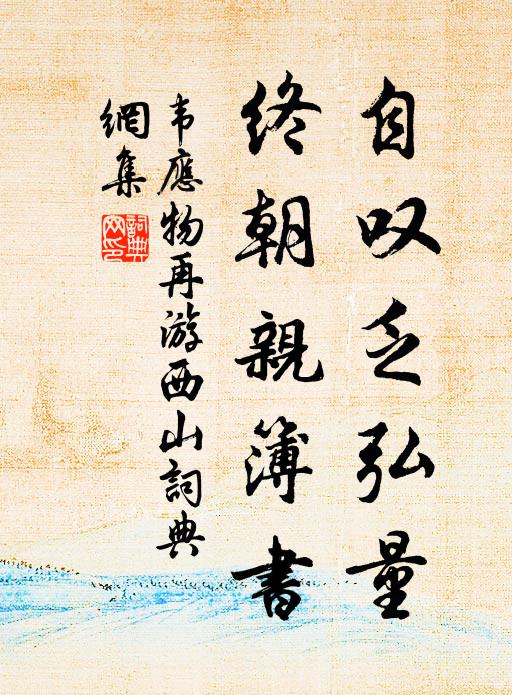 自叹乏弘量
終朝親簿書
韦應物再游西山詞典
網集
詞典
网印